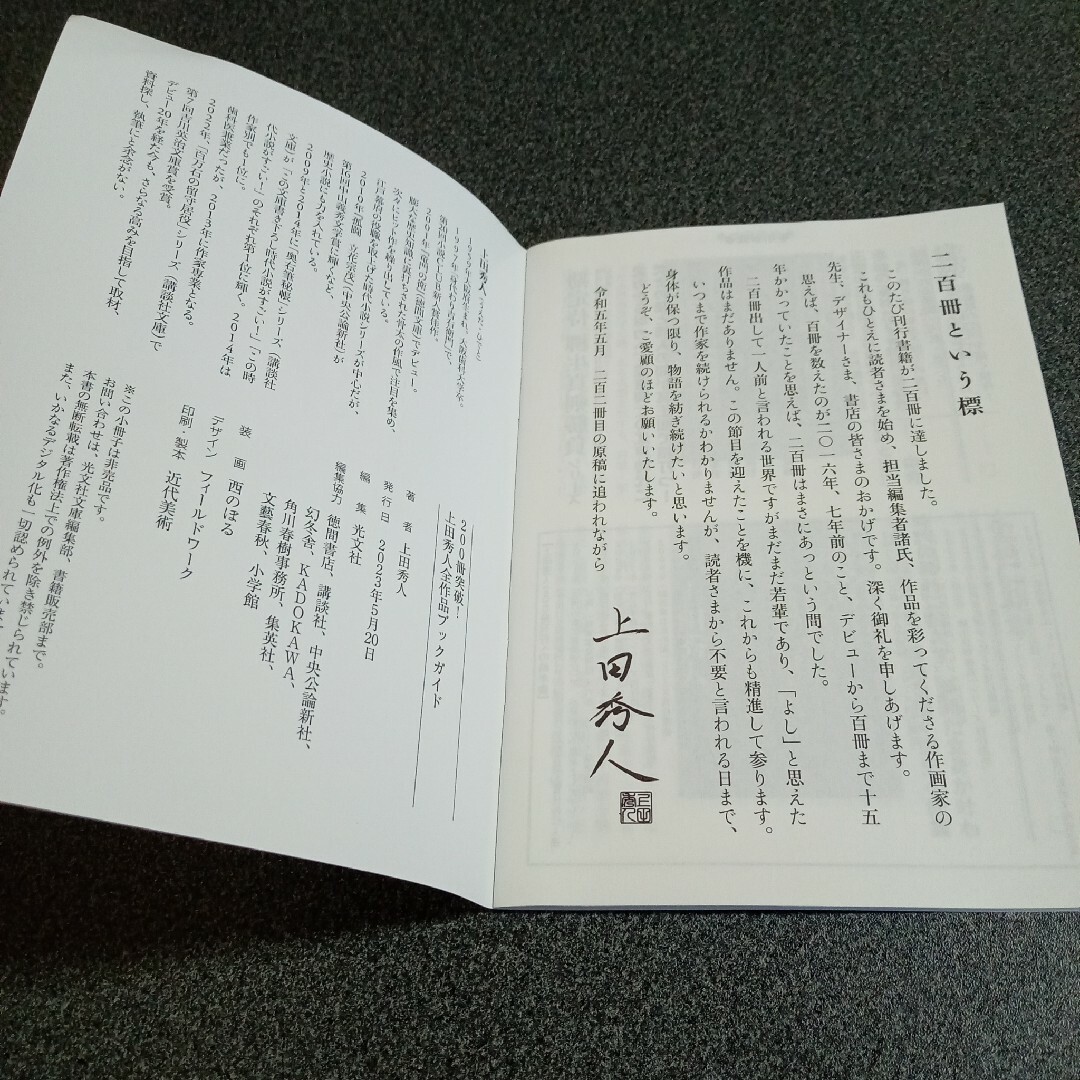 二百冊という標
このたび刊行書籍が二百冊に達しました。
これもひとえに読者さまを始め、担当編集者諸氏、作品を彩ってくださる作画家の
先生、デザイナーさま、書店の皆さまのおかげです。深く御礼を申しあげます。
思えば、百冊を数えたのが二〇一六年、七年前のこと、デビューから百冊まで十五
年かかっていたことを思えば、二百冊はまさにあっという間でした。
二百冊出して一人前と言われる世界ですがまだまだ若輩であり、「よし」と思えた
作品はまだありません。この節目を迎えたことを機に、これからも精進して参ります。
いつまで作家を続けられるかわかりませんが、読者さまから不要と言われる日まで、
身体が保つ限り、物語を紡ぎ続けたいと思います。
どうぞ、ご愛顧のほどお願いいたします。
令和五年五月 二百二冊目の原稿に追われながら
上田秀人
上田秀人
1959年大阪府生まれ。大阪歯科大学卒。
2001年、
次々にヒット作を輩出している。
2010年『孤闘 立花宗茂』(中央公論新社)が
第16回中山義秀文学賞に輝くなど、
歴史小説にも力を入れている。
2009年と2014年に「奥右筆秘帳」シリーズ(講談社
文庫)が「この文庫書き下ろし時代小説がすごい!」「この時
代小説がすごい!」のそれぞれ第1位に輝く。2014年は
作家別でも1位に。
歯科医兼業だったが、2013年に作家専業となる。
2022年、「百万石の留守居役」シリーズ(講談社文庫)で
第7回吉川英治文庫賞を受賞。
デビュー20年を経た今も、さらなる高みを目指して取材、
資料探し、執筆にと余念がない。
200冊突破!
上田秀人全作品ブックガイド
著 者 上田秀人
発行日 2023年5月20日
編 集 光文社
編集協力 徳間書店、講談社、中央公論新社、
幻冬舎、KADOKAWA、
角川春樹事務所、集英社、
文藝春秋、小学館
装 画 西のぼる
デザイン フィールドワーク
印刷・製本 近代美術
※この小冊子は非売品です。
お問い合わせは、光文社文庫編集部、書籍販売部まで。
本書の無断転載は著作権法上での例外を除き禁じられています。
また、いかなるデジタル化も一切認められていません